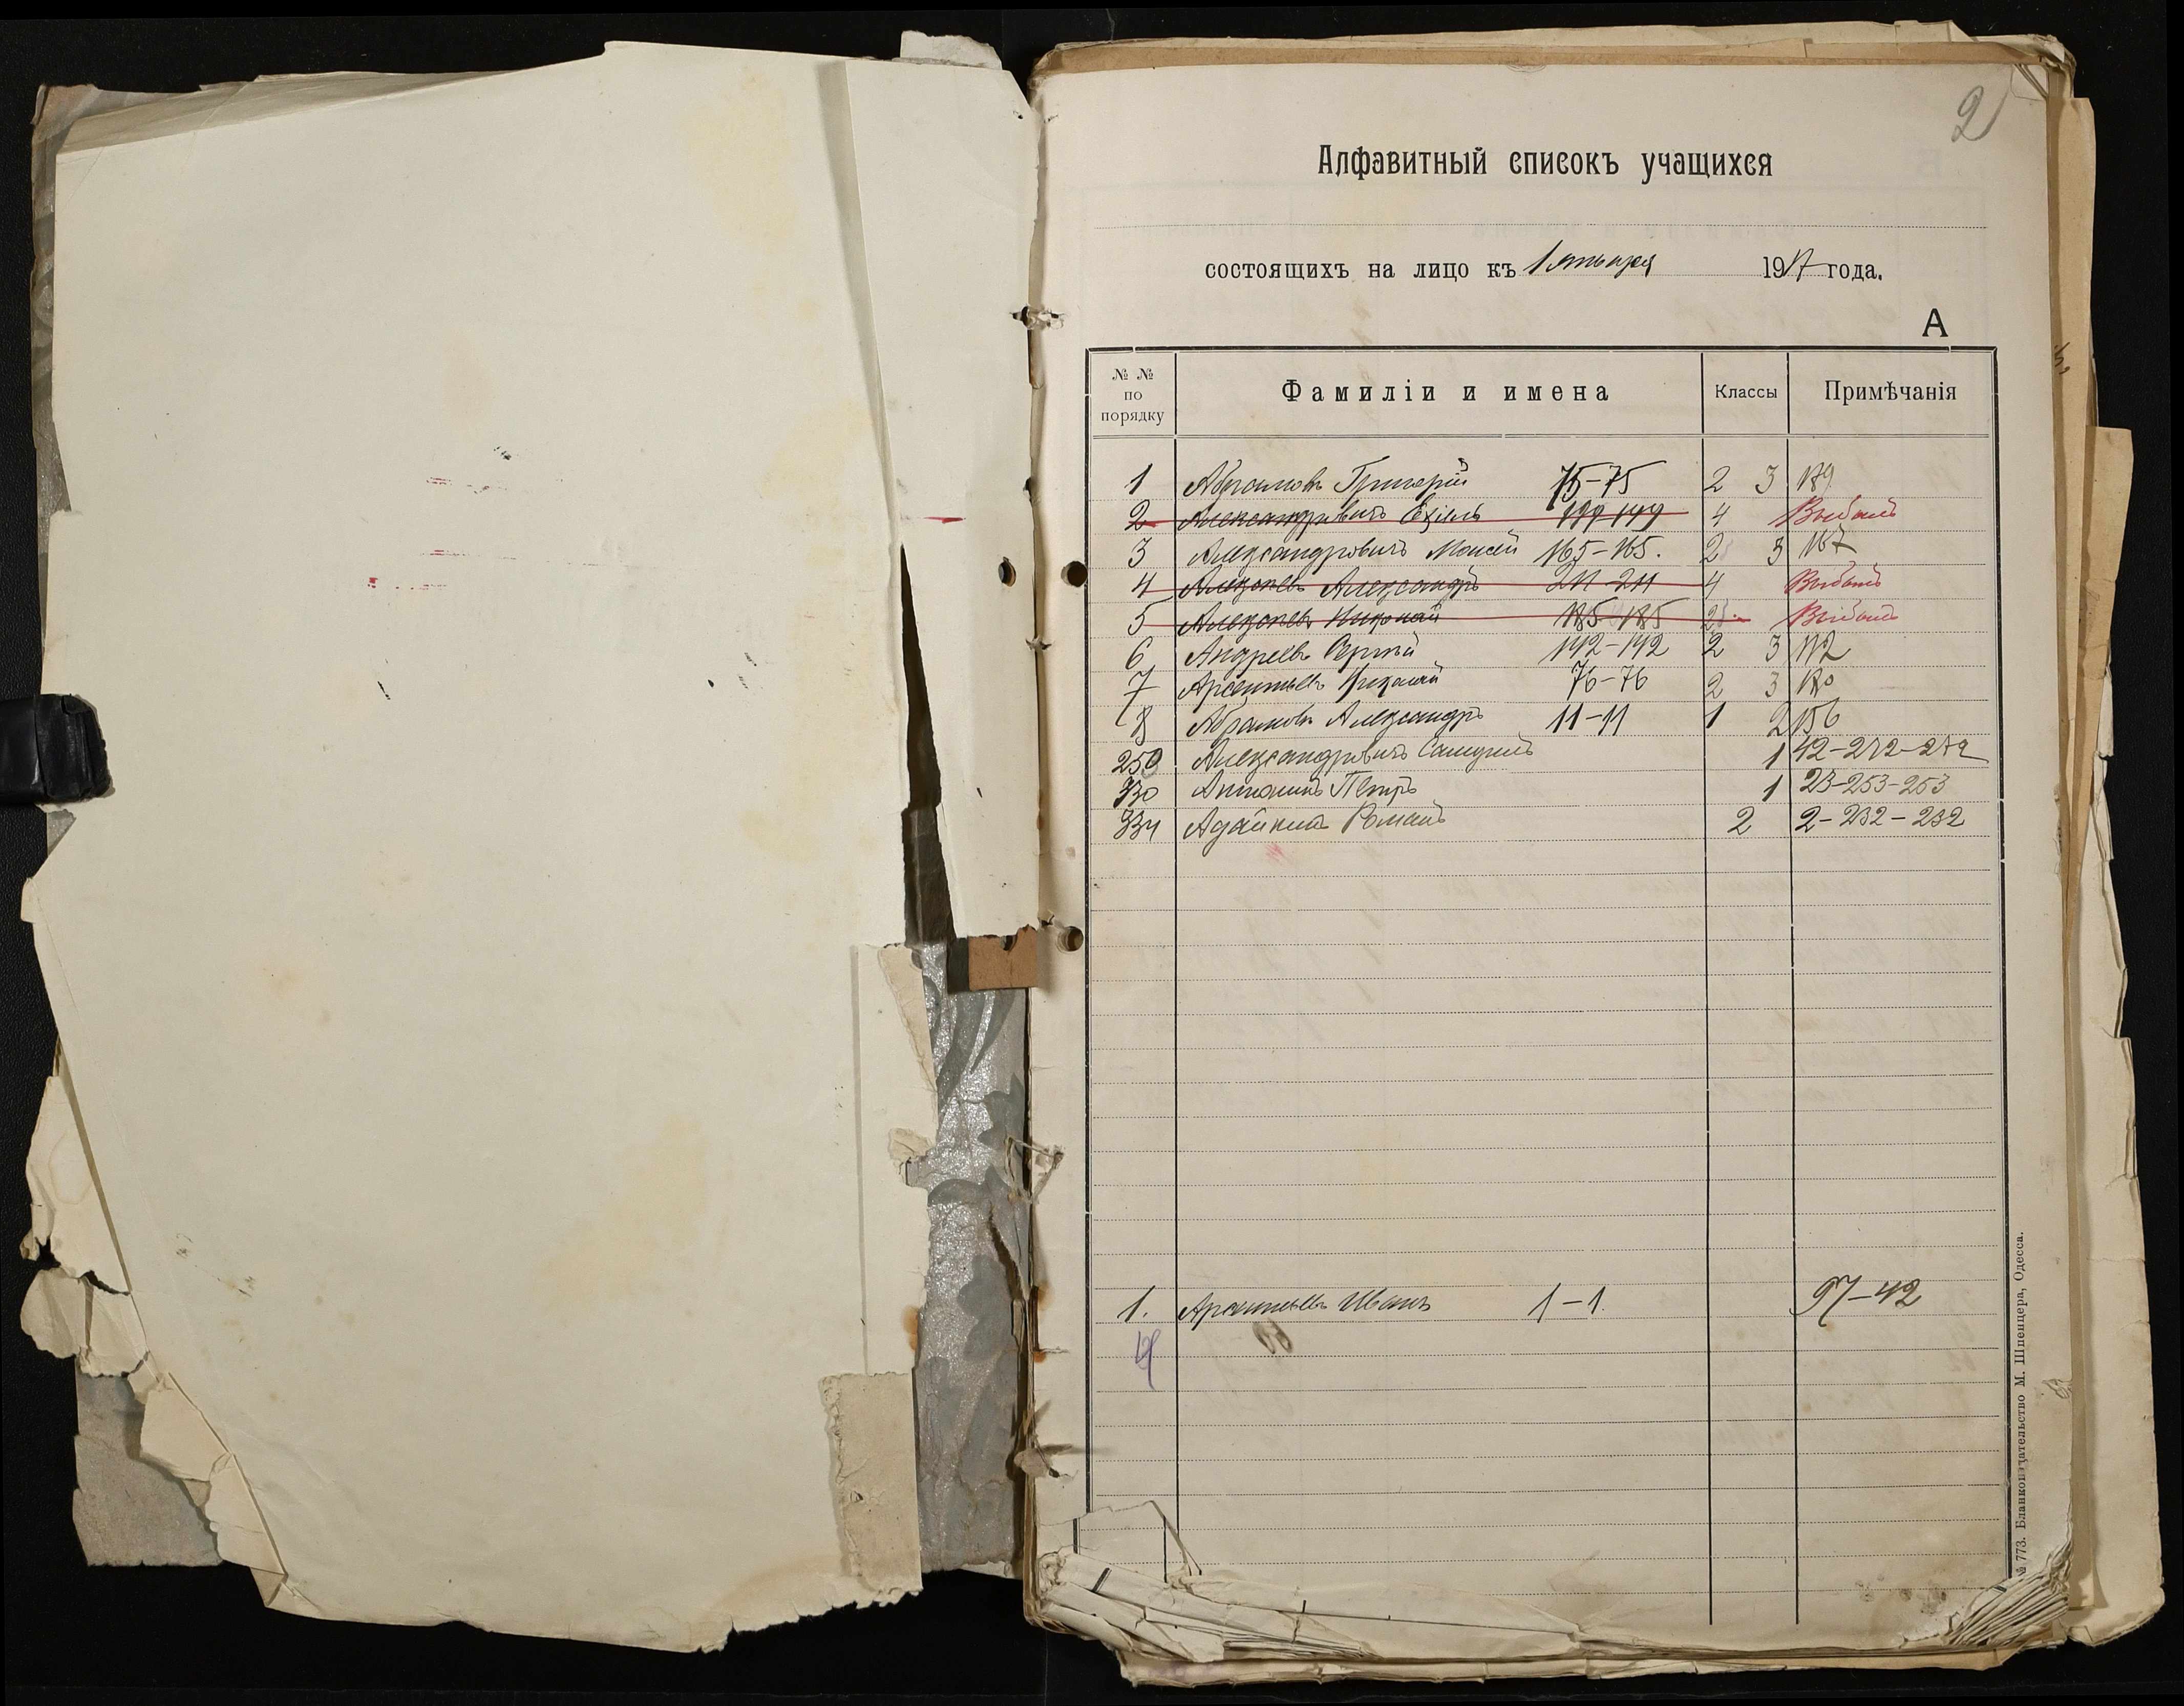 2
Алфавитный списокъ учащихся
состоящихъ на лицо къ 1 января 1917 года.
А
№ № по порядку Фамиліи и имена Классы Примѣчанія
1 Абрамовъ Григорій 75-75 2 3 179
2 Александровичъ Ехіель 149-149 4 Выбылъ
3 Александровичъ Моисей 165-165. 2 3 167
4 Алексѣевъ Александръ 211-211 4 Выбылъ
5 Алексѣевъ Николай 185-185 2 Выбылъ
6 Андреевъ Сергѣй 192-192 2 3 172
7 Арсентьевъ Николай 76-76 2 3 180
8 Абрамовъ Александръ 11-11 1 2 156
250 Александровичъ Самуилъ 1 42-272-272
330 Антонинъ Петръ 1 23-253-253
334 Адайкинъ Романъ 2 2-232-232
1. Арсентьевъ Иванъ 1-1. 97-42
№ 773. Бланкоиздательство М. Шпенцера, Одесса.